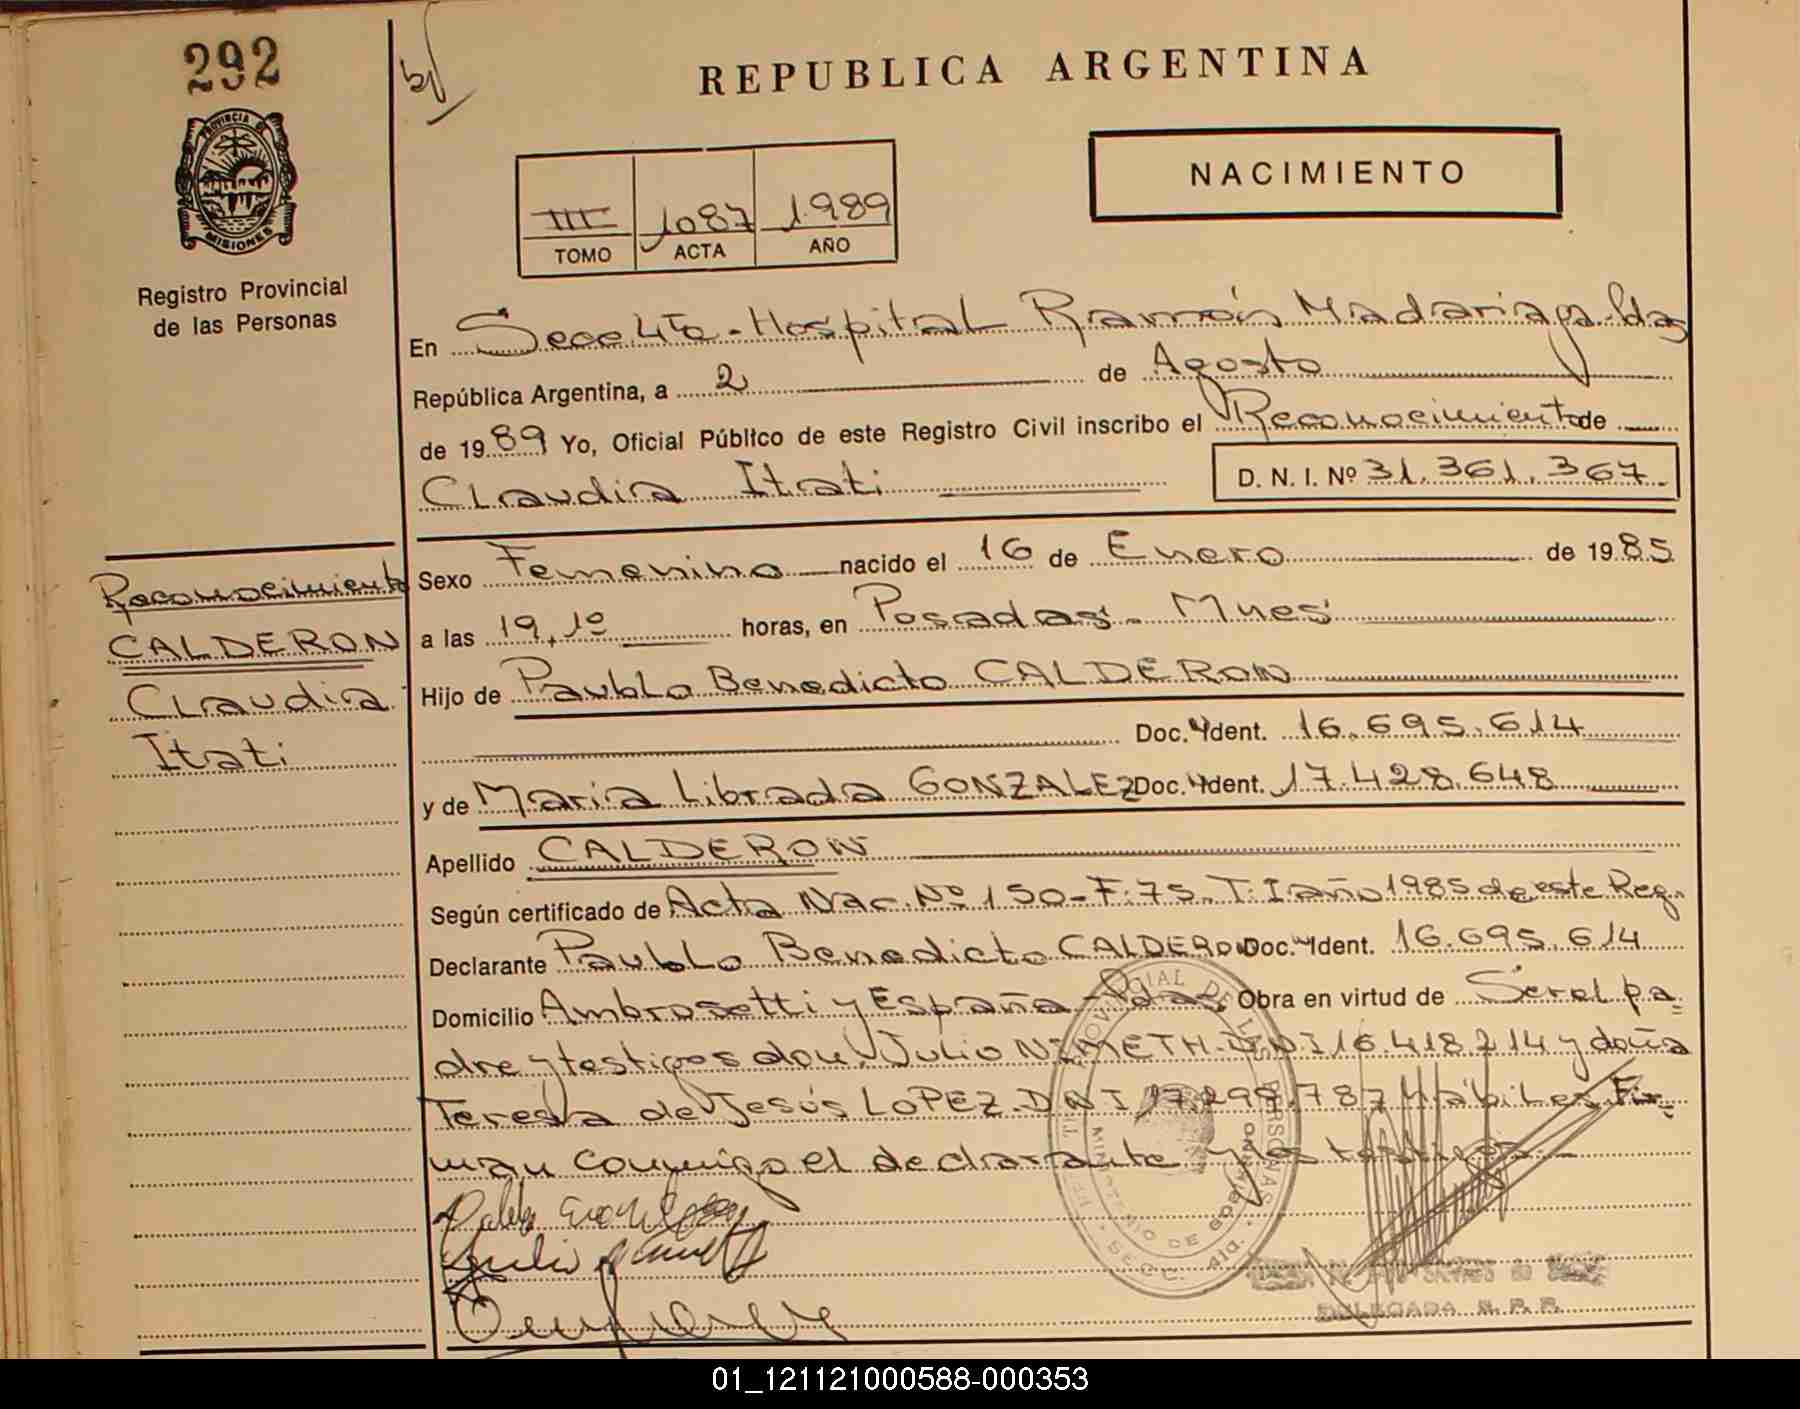 292
REPUBLICA ARGENTINA
NACIMIENTO
PROVINCIA DE
MISIONES
Registro Provincial
de las Personas
III 1087 1989
TOMO ACTA AÑO
En Secc 4ta - Hospital Ramón Madariaga. Pdas
República Argentina, a 2 de Agosto
de 1989 Yo, Oficial Público de este Registro Civil inscribo el Reconocimiento de
Claudia Itati D. N. I. Nº 31.361.367.
Reconocimiento
CALDERON
Claudia
Itati
Sexo Femenino nacido el 16 de Enero de 1985
a las 19,10 horas, en Posadas. Mnes
Hijo de Paublo Benedicto CALDERON
Doc. Ident. 16.695.614
y de Maria Librada GONZALEZ Doc. Ident. 17.428.648
Apellido CALDERON
Según certificado de Acta Nac. Nº 150-F:75. T: I año 1985 de este Reg.
Declarante Paublo Benedicto CALDERON Doc. Ident. 16.695.614
Domicilio Ambrosetti y España - Pdas Obra en virtud de Ser el pa=
dre y testigos don: Julio NEMETH. DNI 16.418.214 y doña
Teresa de Jesús LOPEZ. DNI 17.298.787 Hábiles Fir=
man conmigo el declarante y los testigos
DELEGADA R. P. P.
01_121121000588-000353